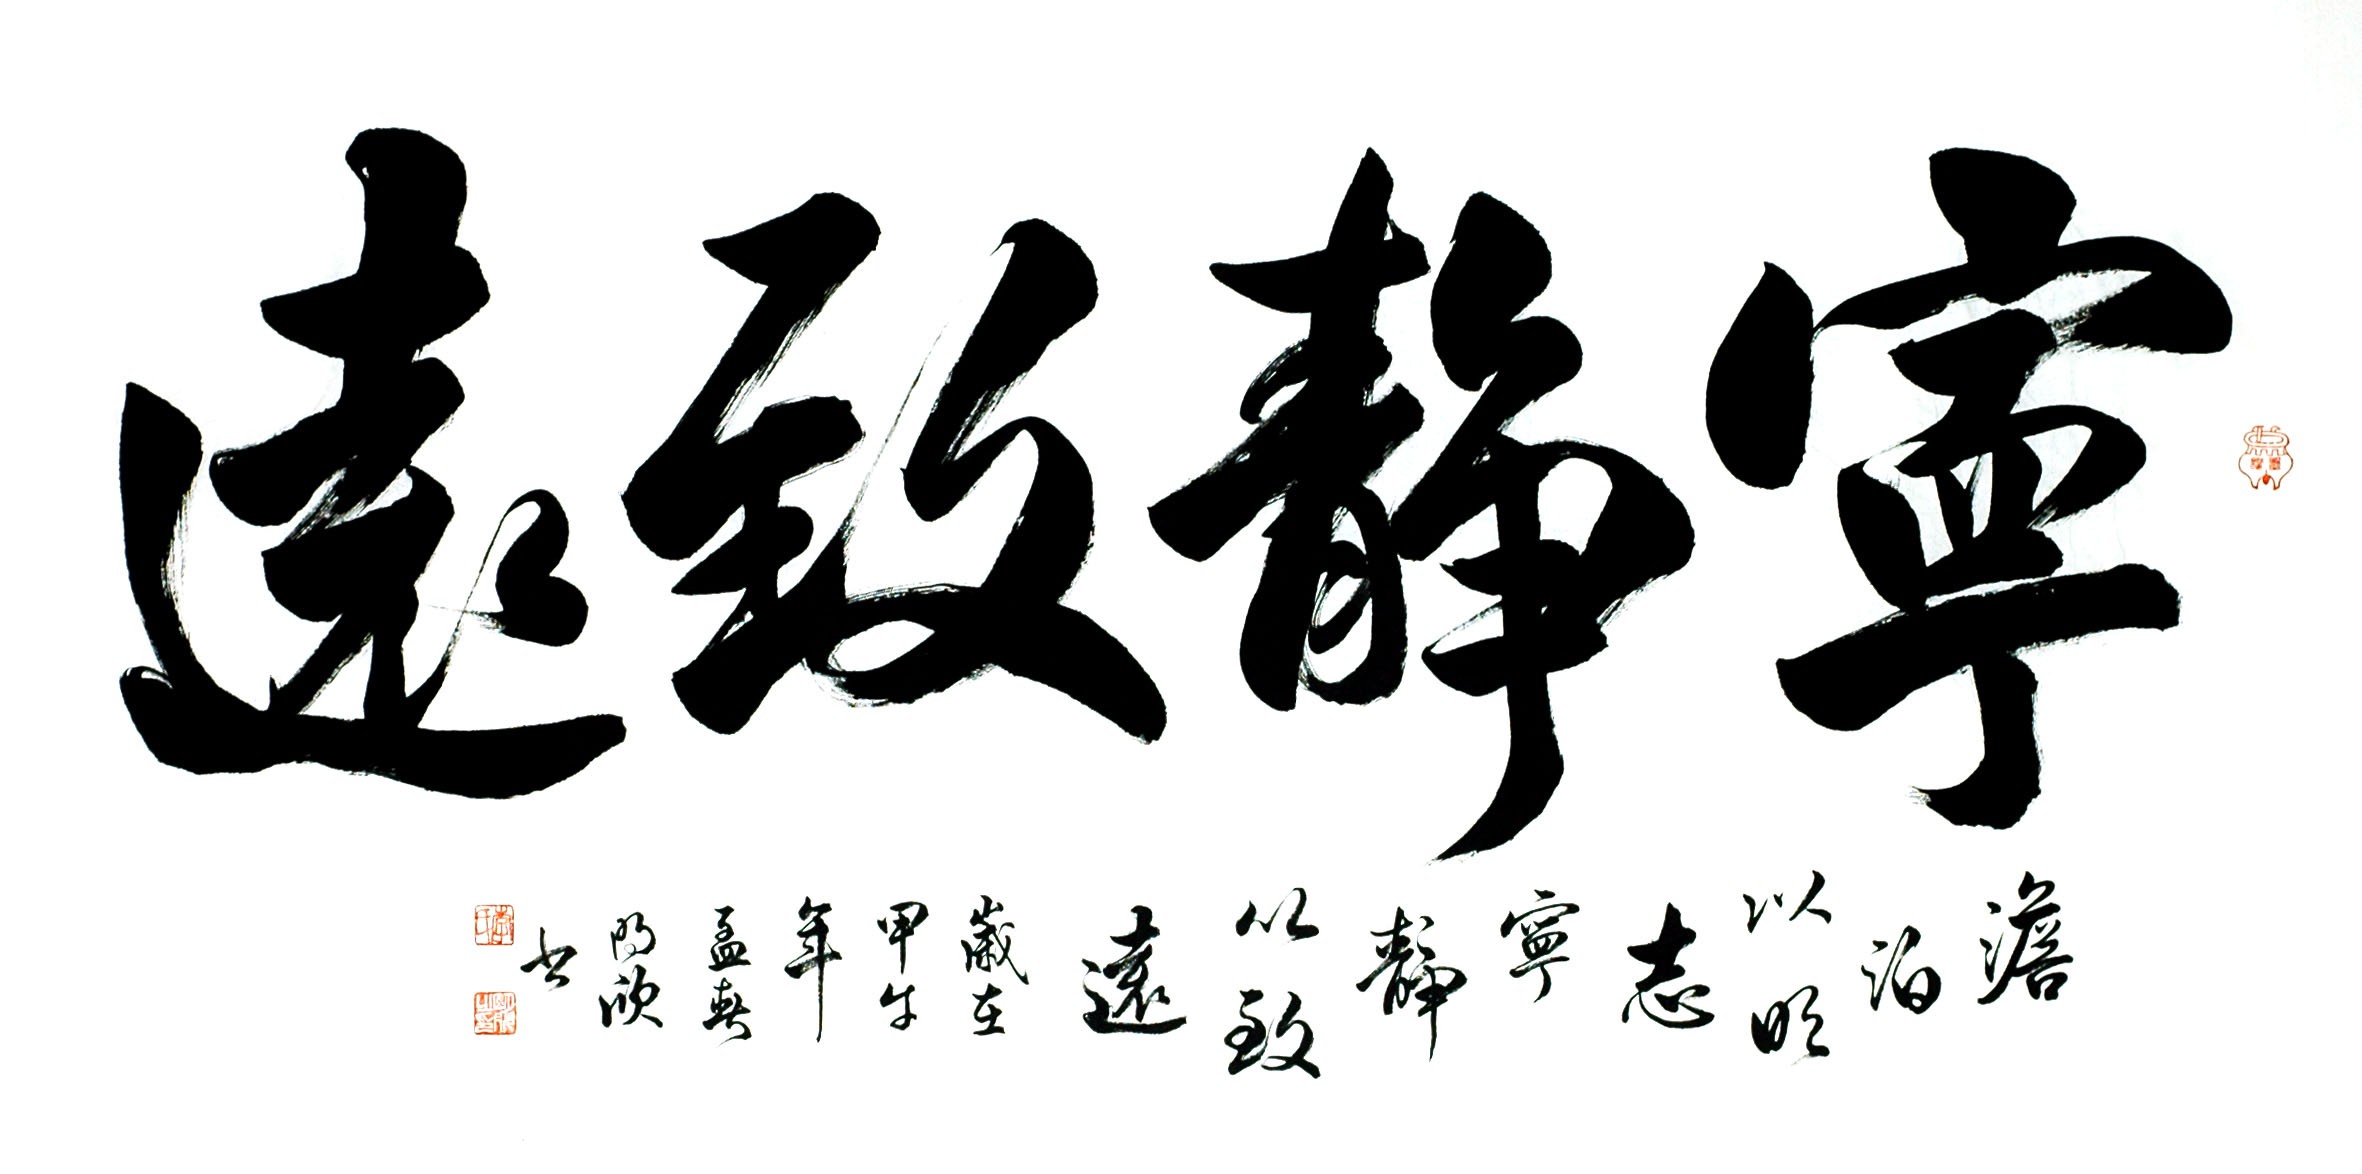 寧靜致遠
澹泊以明志寧靜以致遠歲在甲午年孟春明欣書